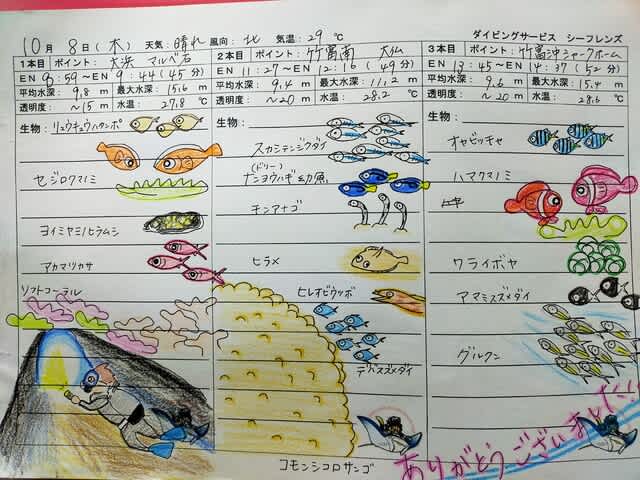 10月 8日(木) 天気:晴れ 風向:北 気温:29℃ ダイビングサービス シーフレンズ
1本目 ポイント:大浜 マルベ石
EN 8:59〜EN 9:44(45分)
平均水深: 9.8 m 最大水深: 15.6 m
透明度: 〜15 m 水温: 27.8 ℃
生物: リュウキュウハタンポ
セジロクマノミ
ヨイミヤミノヒラムシ
アカマツカサ
ソフトコーラル
2本目 ポイント:竹富南 大仏
EN 11:27〜EN 12:16(49分)
平均水深: 9.4 m 最大水深: 11.2 m
透明度: 〜20 m 水温: 28.2 ℃
生物:
スカシテンジクダイ
(ドリー)
ナンヨウハギ幼魚
チンアナゴ
ヒラメ
ヒレオビウツボ
デバスズメダイ
コモンシコロサンゴ
3本目 ポイント:竹富沖シャークホーム
EN 13:45〜EN 14:37(52分)
平均水深: 9.6 m 最大水深: 15.4 m
透明度: 〜20 m 水温: 28.6 ℃
生物:
オヤビッチャ
ハマクマノミ
ワライボヤ
アマミスズメダイ
グルクン
ありがとうございました!